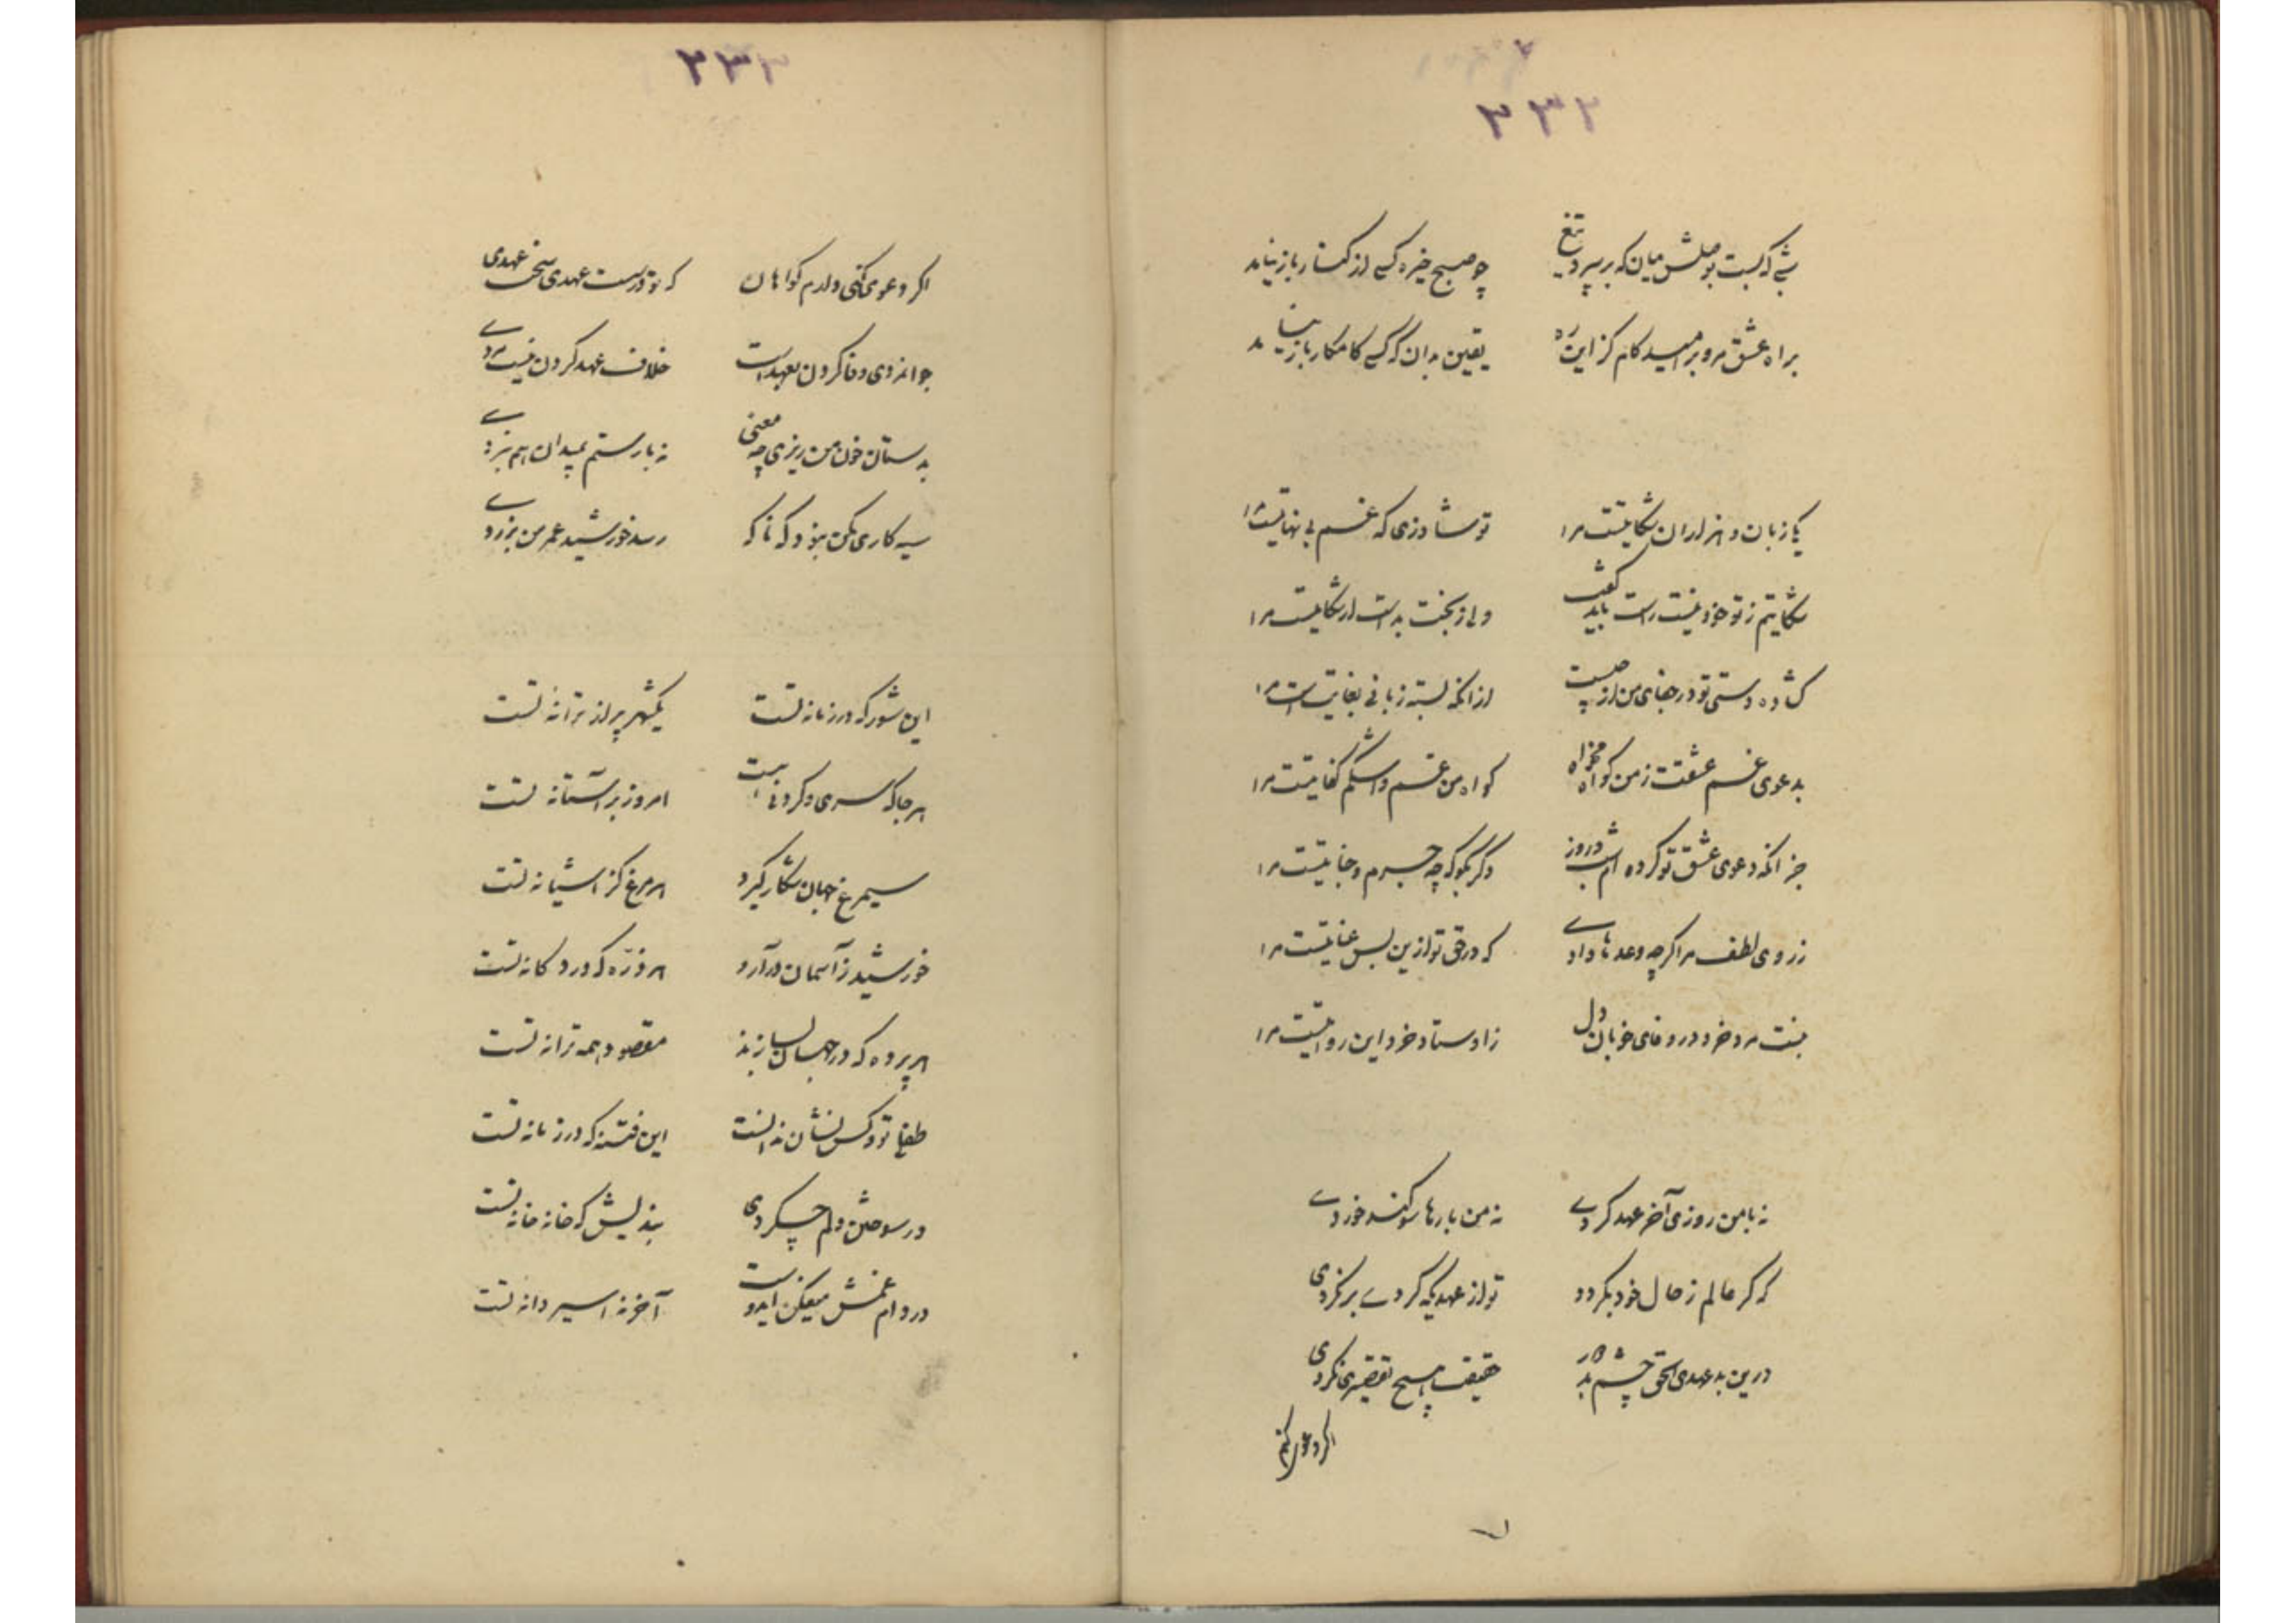 ۲۳۲
شبی که بست بوصلش میان که بر سپرد تیغ چو صبح خیره کسی از کنار باز نیامد
براه عشق مرو بر امید کام کز این ره یقین بدان که کسی کامکار باز نیامد
یکا زبان و هزاران شکایتست مرا تو شاد زی که غم بی نهایتست مرا
شکایتم ز تو خود نیست راست باید گفت ولی ز بخت بد است ار شکایتست مرا
گشاده دستی تو در جفای من از چیست از آنکه بسته زبانی بغایتست مرا
بدعوی غم عشقت ز من گواه مخواه گواه من غم و اشکم کفایتست مرا
جز آنکه دعوی عشق تو کرده ام شب و روز دگر بگو که چه جرم و جنایتست مرا
ز روی لطف مرا گرچه وعدها دادی که در حق تو ازین پس عنایتست مرا
نبست مرد خرد در وفای خوبان دل ز اوستاد خرد این روایتست مرا
نه با من روزی آخر عهد کردی نه من بارها سوگند خوردی
که گر عالم ز حال خود بگردد تو از عهدیکه کردی برنگردی
درین بد عهدی الحق چشم بد دور حقیقت هیچ تقصیری نکردی
اگر دعوی کنی
۲۳۳
اگر دعوی کنی دارم گواهان که تو درست عهدی سخت عهدی
جوانمردی وفا کردن بعهد است خلاف عهد کردن نیست مردی
بدستان خون من ریزی چه معنی نه با رستم بمیدان هم نبردی
سیه کاری مکن بنود که ناکه رسد خورشید عمر من بزردی
این شور که در زمانه تست یکشهر پر از ترانه تست
هر جا که سری و گردنی هست امروز بر آستانه تست
سیمرغ جهان شکار گیرد هر مرغ کز آشیانه تست
خورشید ز آسمان درآرد هر ذره که در دکانه تست
هر پرده که در جهان بسازند مقصود همه ترانه تست
طفلی تو و کس نشان ندانست این فتنه که در زمانه تست
در سوختن دلم چه کردی بندیش که خانه خانه تست
در دام غمش میفکن ایدوست آخر نه اسیر دانه تست